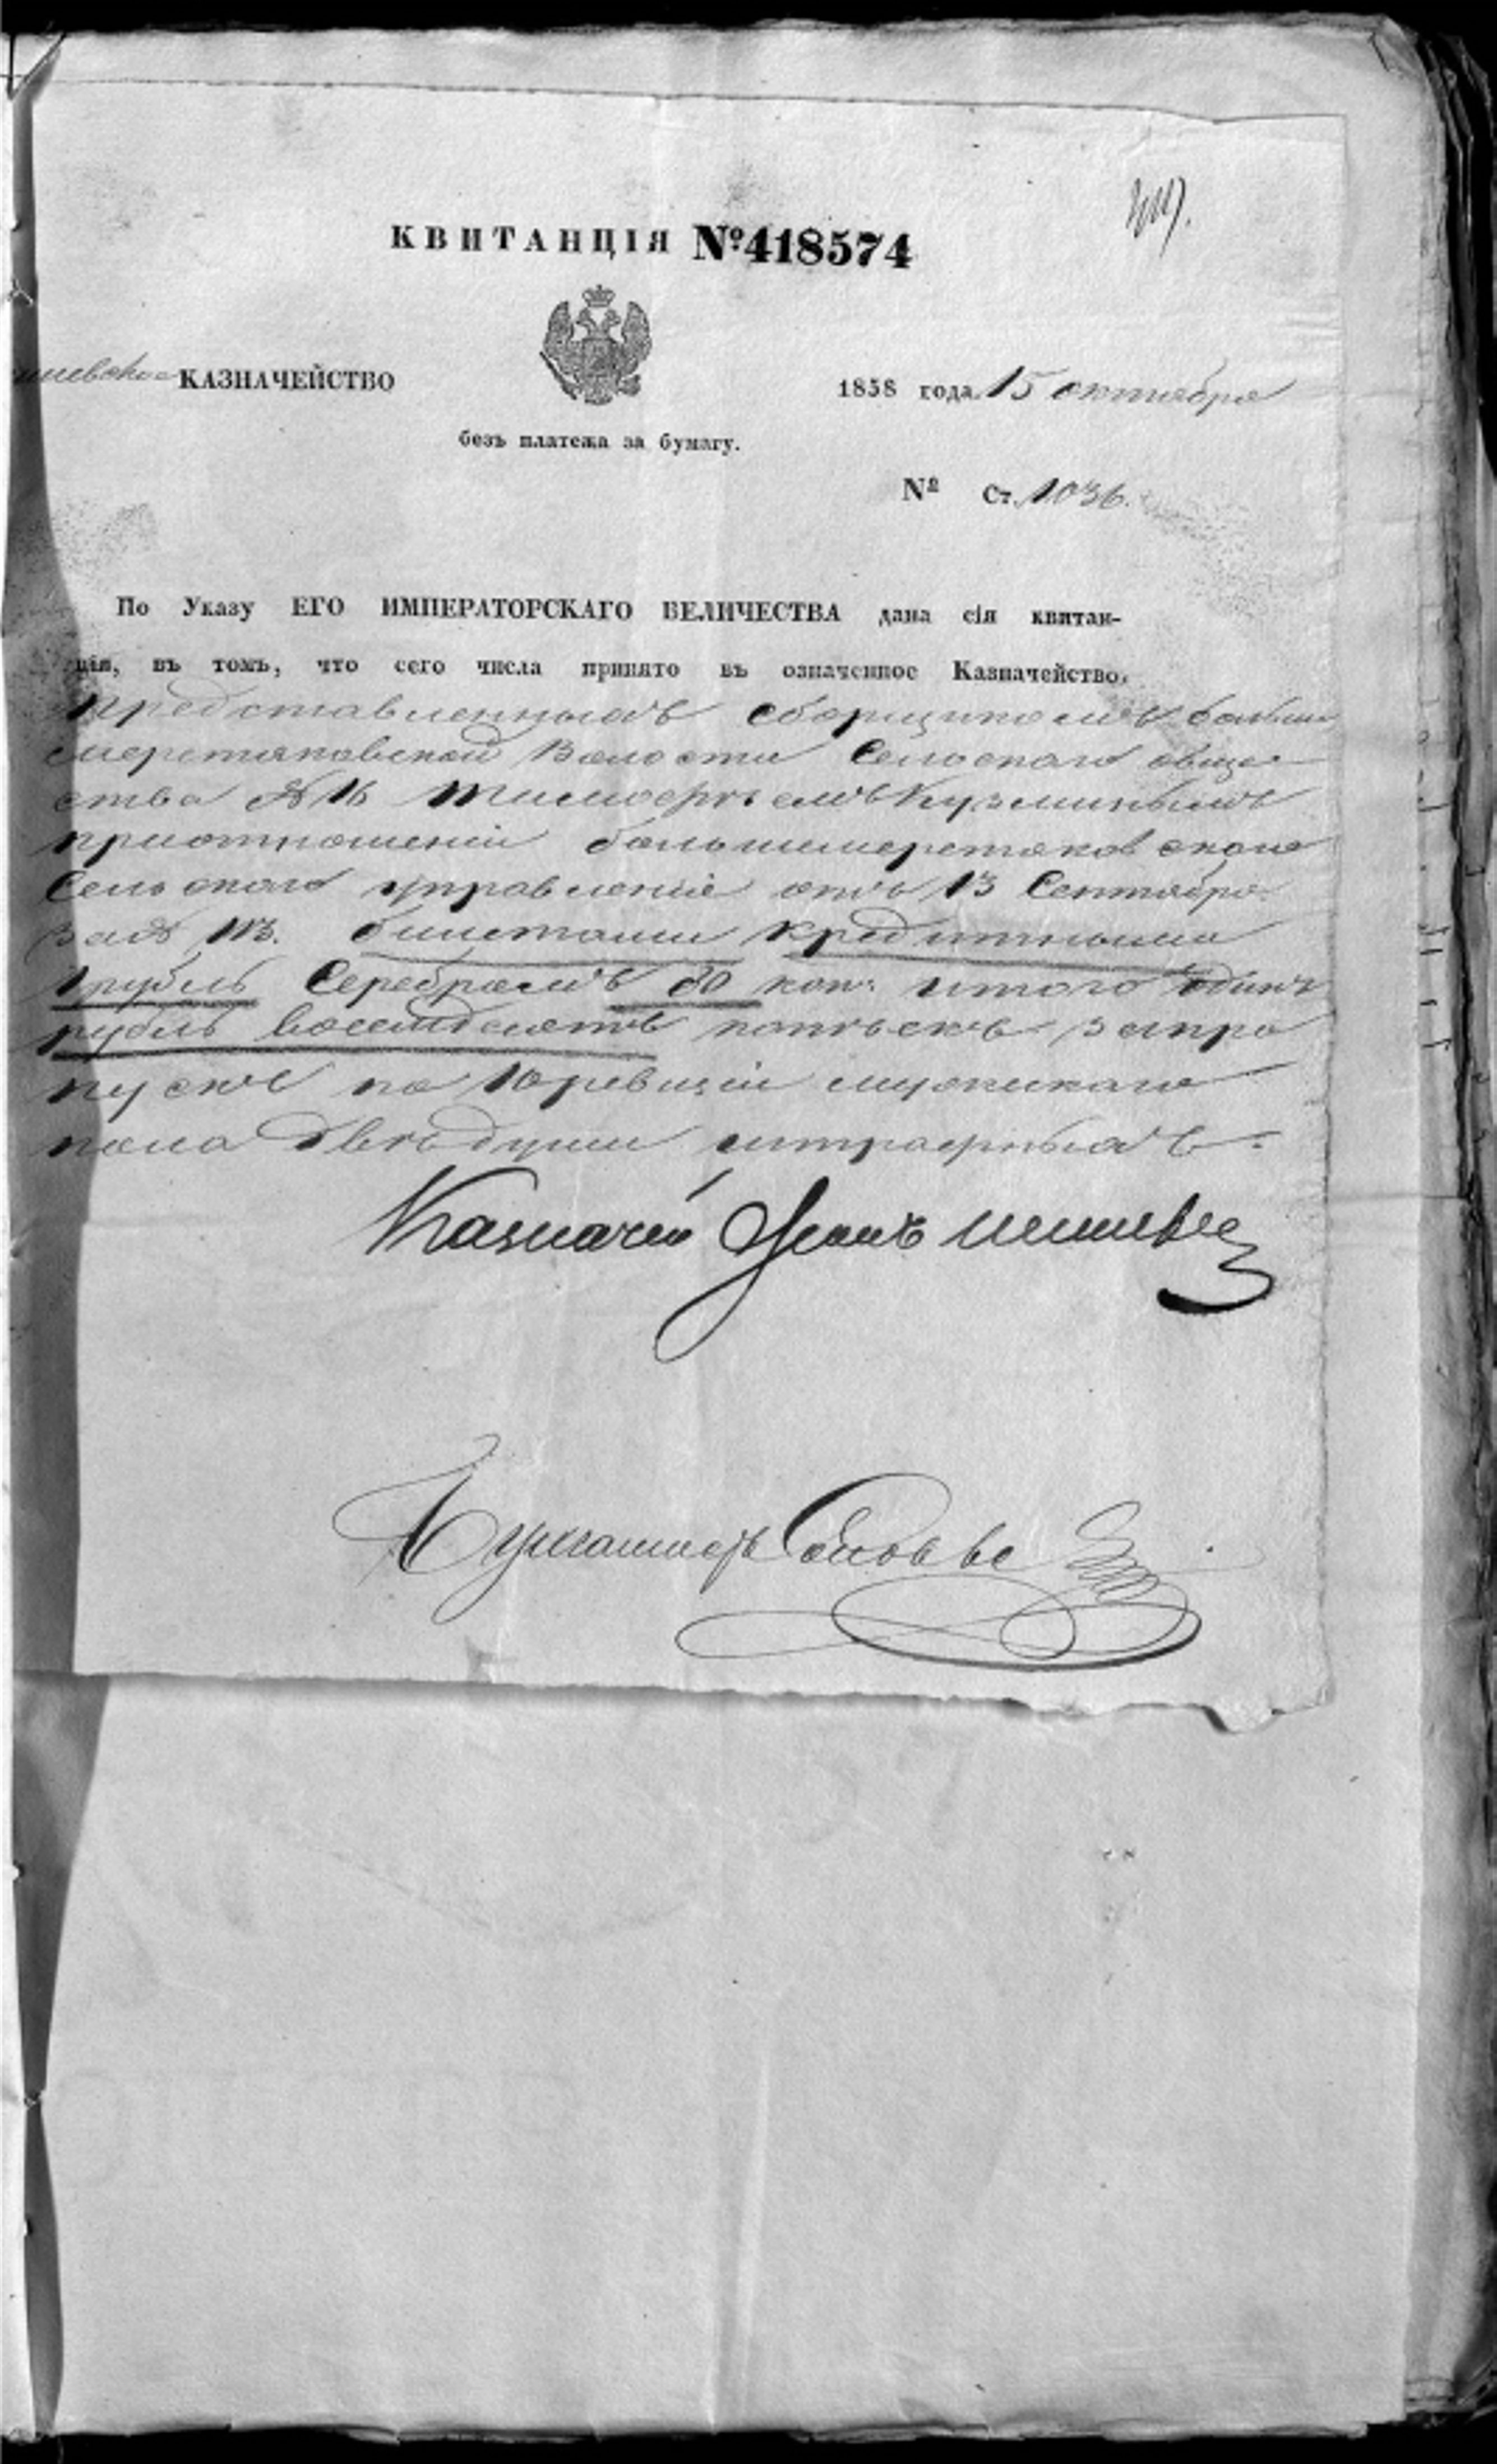 КВИТАНЦІЯ №418574
КАЗНАЧЕЙСТВО
1858 года 15 октября
безъ платежа за бумагу.
№ Ст. 1036.
По Указу ЕГО ИМПЕРАТОРСКАГО ВЕЛИЧЕСТВА дана сія квитан-
ція, въ томъ, что сего числа принято въ означенное Казначейство,
представленныхъ сборщикомъ больше
меретяковской Волости Сельскаго обще
ства № 16 Тимофеемъ Кузминымъ
приотношеніи большемеретяковскаго
Сельскаго управленіе отъ 13 Сентября
за № 113. билетами кредитными
1 рубль Серебромъ 80 коп: итого одинъ
рубль восемдесятъ копѣекъ запро
пускъ по 10 ревизіи мужескаго
пола двѣ души штрафныхъ.
Казначей
Бухгалтеръ Соловье